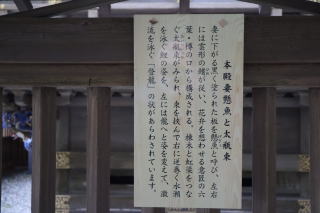 本殿妻懸魚と太瓶束
妻に下がる黒く塗られた板を懸魚と呼び、左右
には雲形の鰭が従い、花弁を想わせる意匠の六
葉・樽の口から構成される。棟木と虹梁をつな
ぐ太瓶束がみられ、束を挟んで右に逆巻く水瀬
を泳ぐ鯉の姿を、左には龍へと姿を変えて、激
流を泳ぐ「登龍」の状があらわされています。